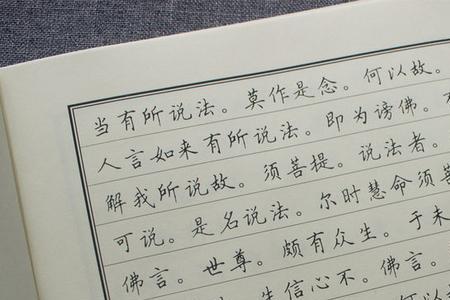 当有所说法。莫作是念。何以故。
人言如来有所说法。即为谤佛。
解我所说故。须菩提。说法者。
可说。是名说法。尔时慧命须菩
佛言。世尊。颇有众生。于未
生信心不。佛言。
何以故